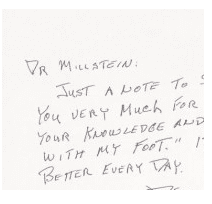 DR MILLSTEIN:
JUST A NOTE TO
YOU VERY MUCH FOR
YOUR KNOWLEDGE AND
WITH MY FOOT." I
BETTER EVERY DAY.